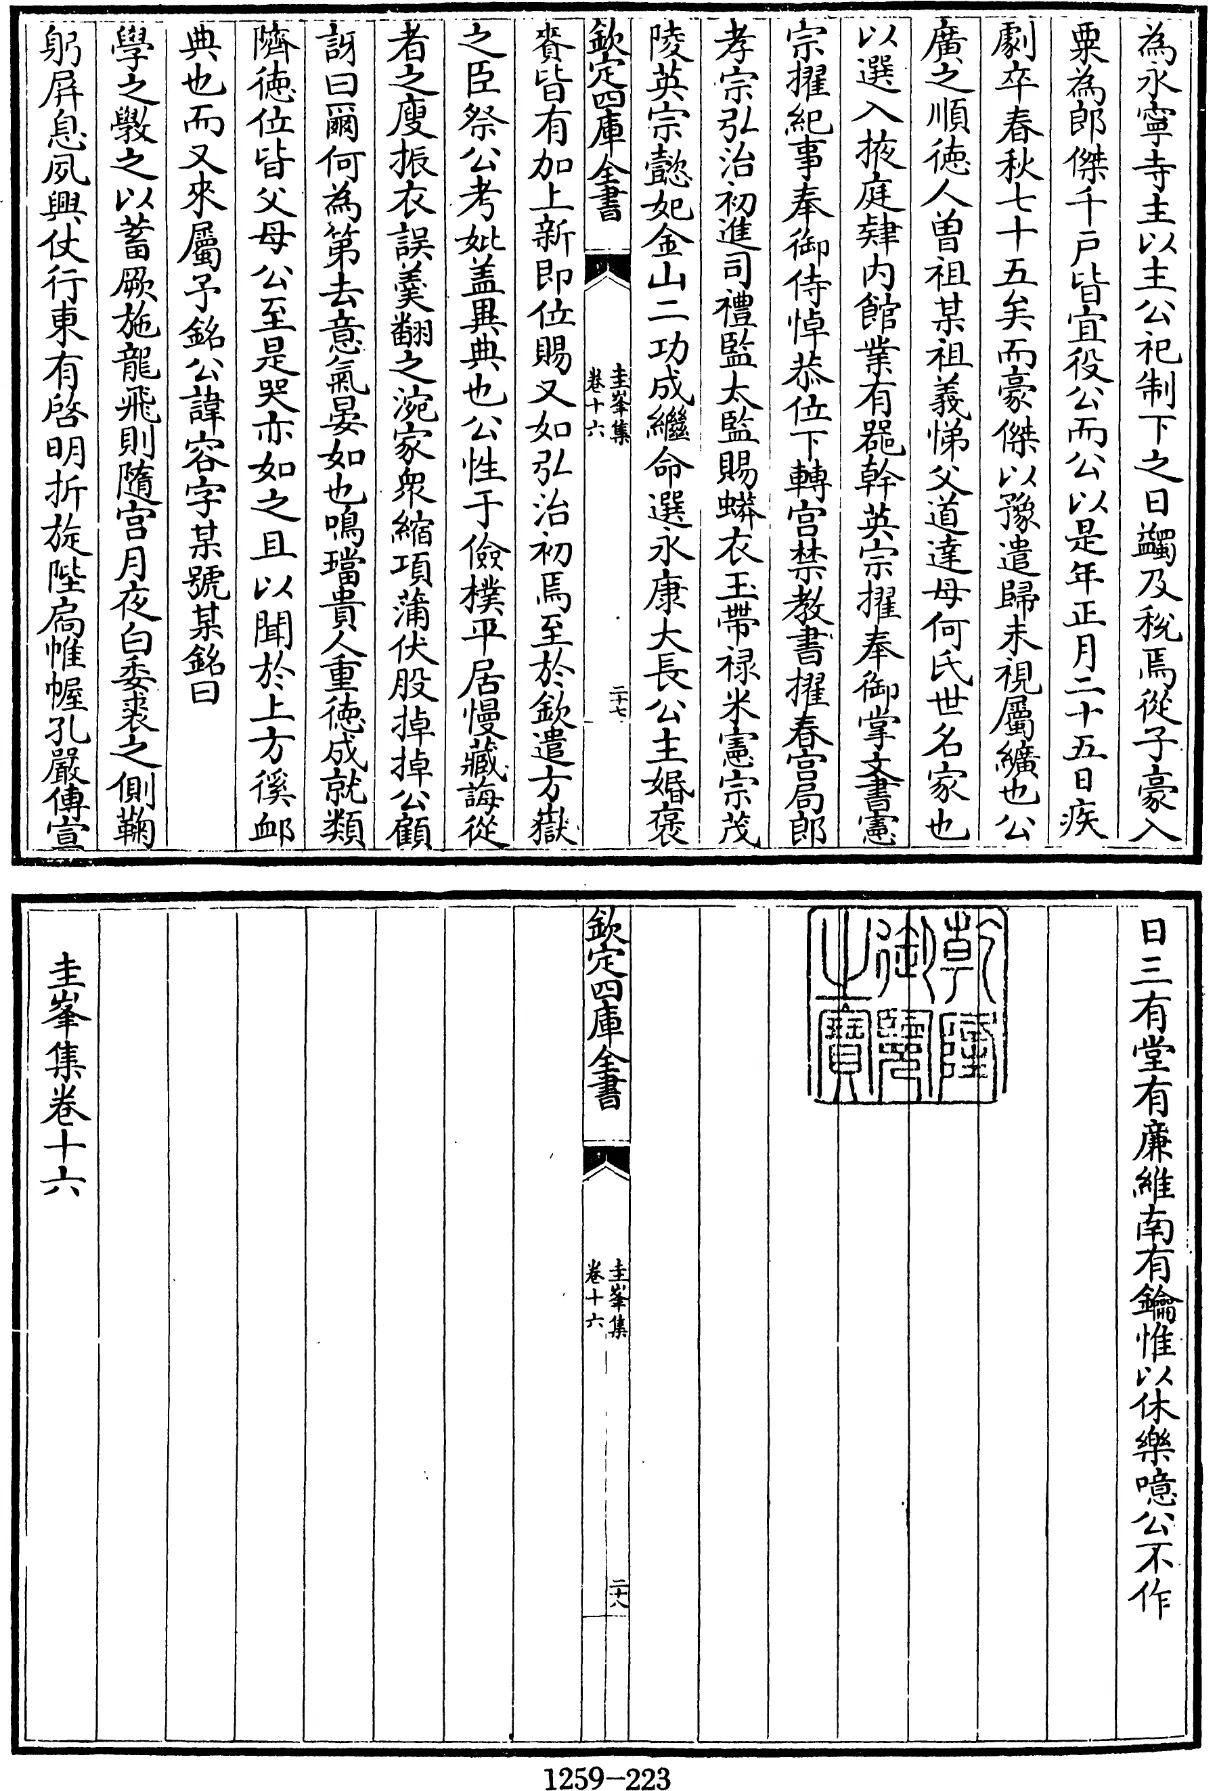 為永寧寺主以主公祀制下之日蠲及稅焉從子豪入
粟為郎傑千戸皆宜役公而公以是年正月二十五日疾
劇卒春秋七十五矣而豪傑以豫遣歸未視屬纊也公
廣之順徳人曽祖某祖義悌父道達母何氏世名家也
以選入掖庭肄内館業有噐幹英宗擢奉御掌文書憲
宗擢紀事奉御侍悼恭位下轉宫禁教書擢春宫局郎
孝宗弘治初進司禮監太監賜蟒衣玉帶禄米憲宗茂
陵英宗懿妃金山二功成繼命選永康大長公主婚褒
欽定四庫全書
圭峯集
卷十六
二十七
賚皆有加上新即位賜又如弘治初焉至於欽遣方嶽
之臣祭公考妣盖異典也公性于儉樸平居慢藏誨從
者之廋振衣誤羹翻之涴家衆縮項蒲伏股掉掉公顧
訝曰爾何為第去意氣晏如也鳴璫貴人重徳成就類
隮徳位皆父母公至是哭亦如之且以聞於上方徯卹
典也而又來屬予銘公諱容字某號某銘曰
學之斆之以蓄厥施龍飛則隨宫月夜白委裘之側鞠
躬屏息夙興仗行東有啓明折旋陛扄帷幄孔嚴傅宣
日三有堂有廉維南有鑰惟以休樂噫公不作
乾隆
御覽
之寳
欽定四庫全書
圭峯集
卷十六
二十八
圭峯集卷十六
1259—223